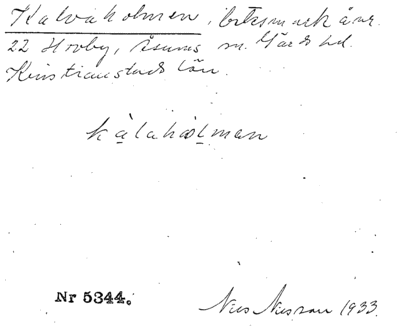 Kalvaholmen, betesmark å nr.
22 Hovby, Åsums sn. Gärds hd.
Kristianstads län.
kálahólman
Nr 5344.
Nils Nilsson 1933.